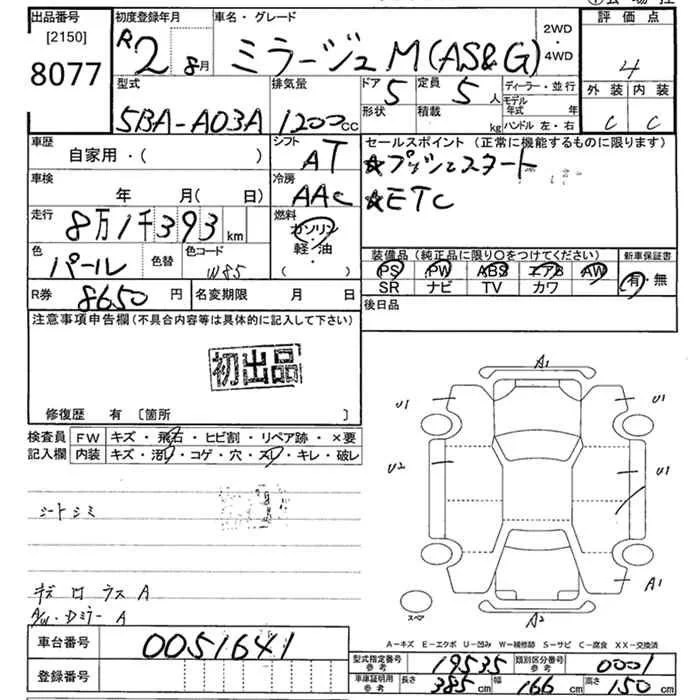 出品番号
[2150]
8077
初度登録年月
R2 8月
車名・グレード
ミラージュ M(AS&G)
2WD
・
4WD
評価点
4
外装 内装
C C
型式
5BA-A03A
排気量
1200CC
ドア 5
形状
定員 5人
積載 kg
ディーラー・並行
モデル年式 年
ハンドル 左・右
車歴
自家用・( )
シフト
AT
セールスポイント (正常に機能するものに限ります)
☆プッシュスタート
☆ETC
車検
年 月( 日)
冷房
AAC
走行
8万1千393km
燃料
ガソリン
軽・油
・( )
色
パール
色替
色コード
W85
装備品 (純正品に限り○をつけてください)
PS PW ABS エアB AW
SR ナビ TV カワ
新車保証書
有・無
R券
8650円
名変期限 月 日
後日品
注意事項申告欄(不具合内容等は具体的に記入して下さい)
初出品
修復歴 有 〔箇所 〕
検査員記入欄
FW キズ・飛石・ヒビ割・リペア跡・×要
内装 キズ・汚れ・コゲ・穴・スレ・キレ・破レ
シートシミ
A/W・Dミラー A
A1
U1 U1
U2 U1
A1
A2
スペア
A-キズ E-エクボ U-凹み W-補修跡 S-サビ C-腐食 XX-交換済
車台番号
0051641
登録番号
型式指定番号 参考
19535
類別区分番号 参考
0001
車庫証明用 参考
長さ 385cm
幅 166cm
高さ 150cm